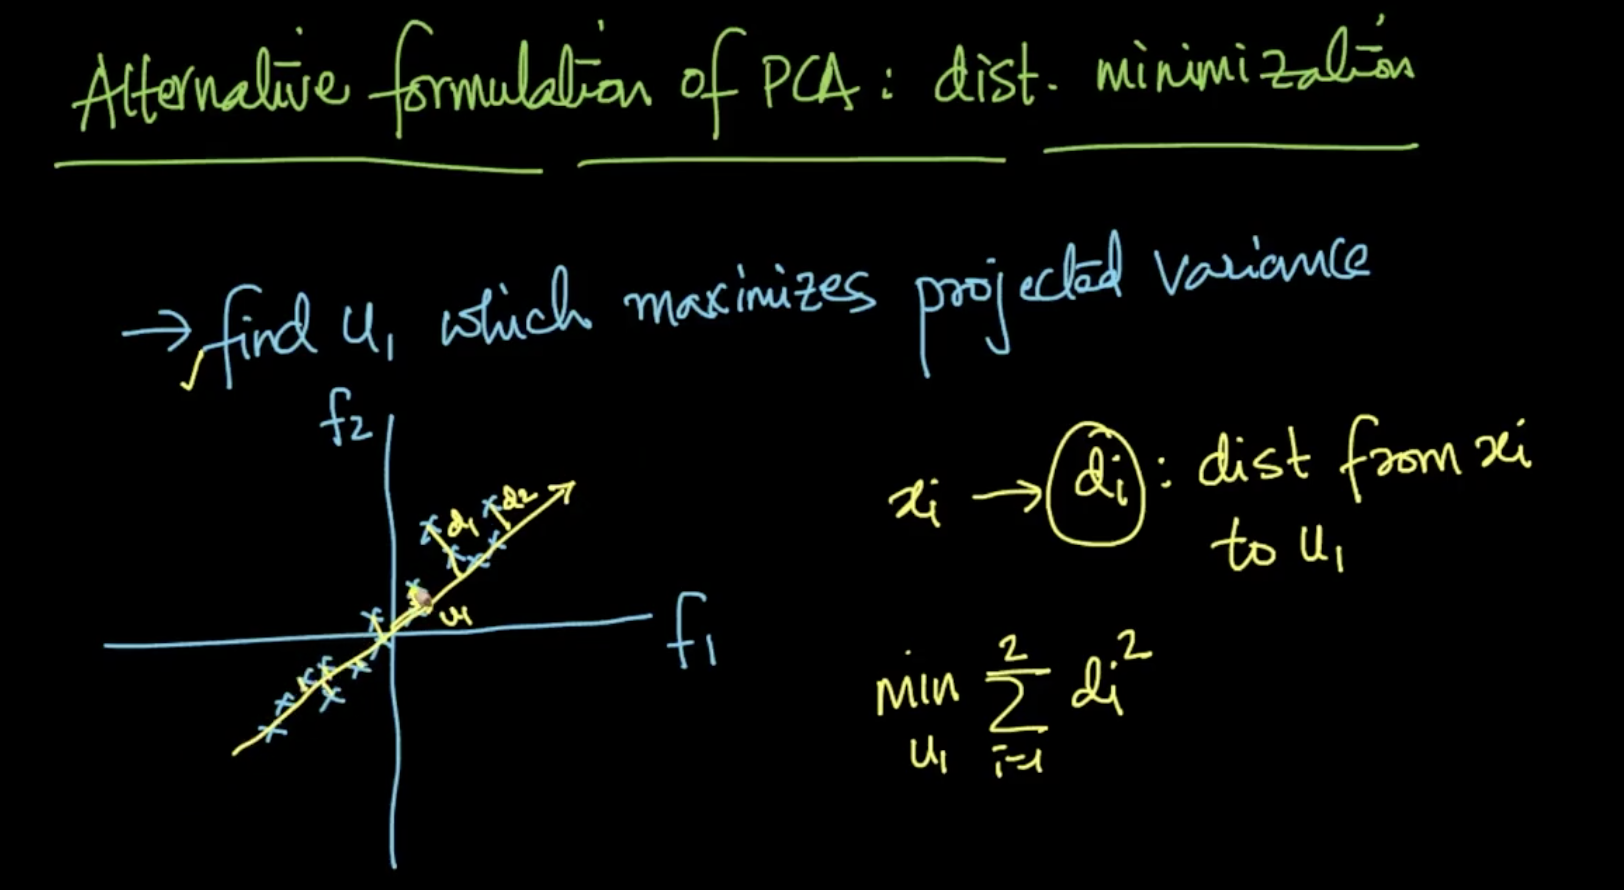 Alternative formulation of PCA: dist. minimization
→ find u₁ which maximizes projected variance
f₂
d₁ d₂
u₁
f₁
xᵢ → dᵢ: dist from xᵢ
to u₁
min ∑ dᵢ²
2
u₁ i=1